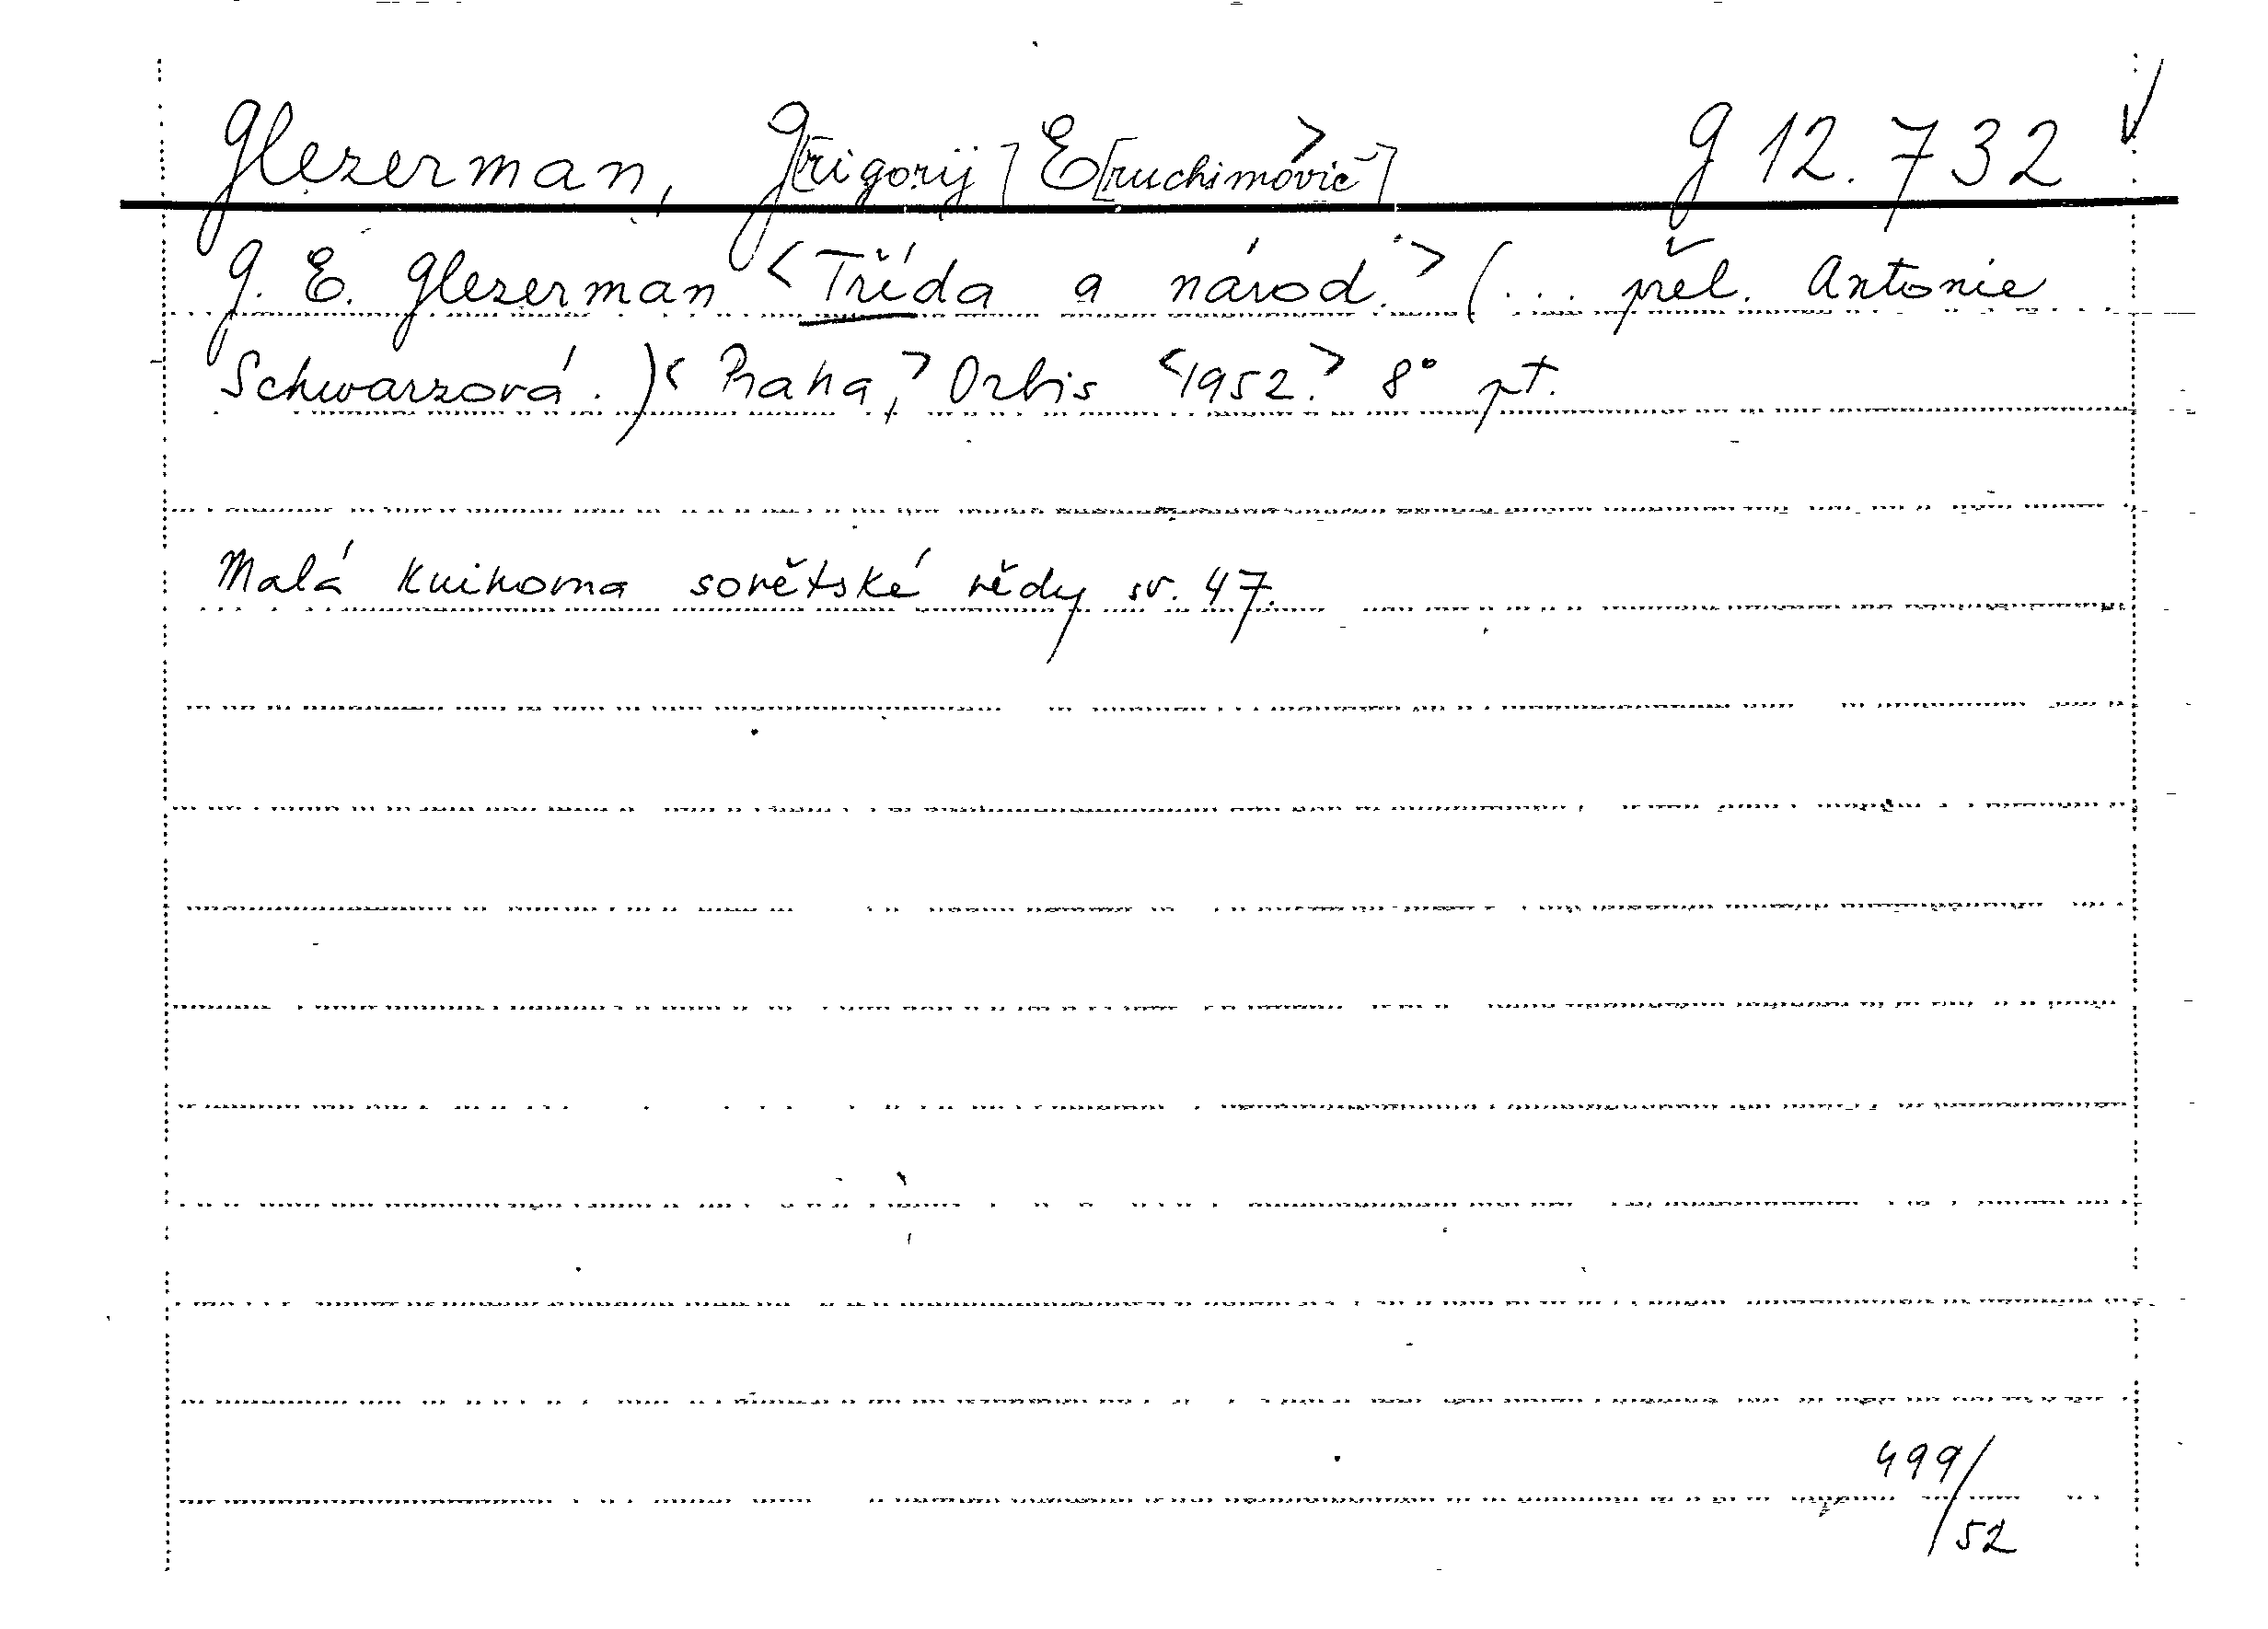 Glezerman, G[rigorij] E[ruchimovič]> G 12.732
G. E. Glezerman <Třída a národ.> (... přel. Antonie
Schwarzová.) <Praha,> Orbis <1952.> 8° pt.
Malá knihovna sovětské vědy sv. 47.
499/
52